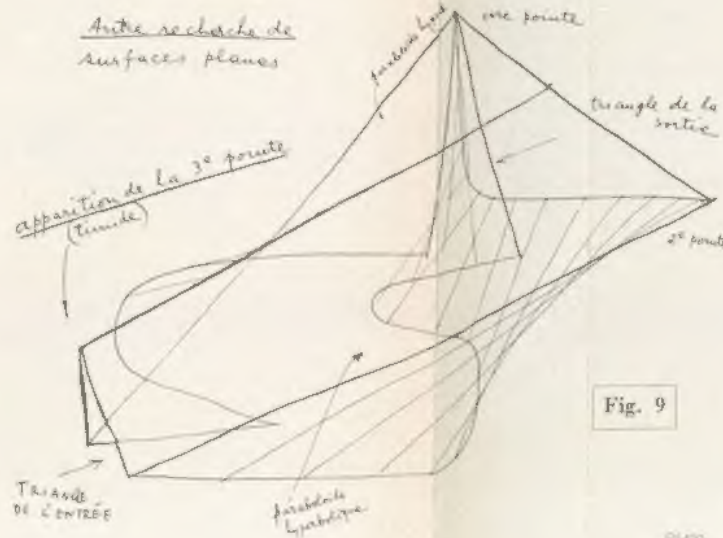 Autre recherche de
surfaces planes
paraboloïde hyperb
1re pointe
triangle de la
sortie
apparition de la 3e pointe
(timide)
2e pointe
Fig. 9
TRIANGLE
DE L'ENTRÉE
paraboloïde
hyperbolique